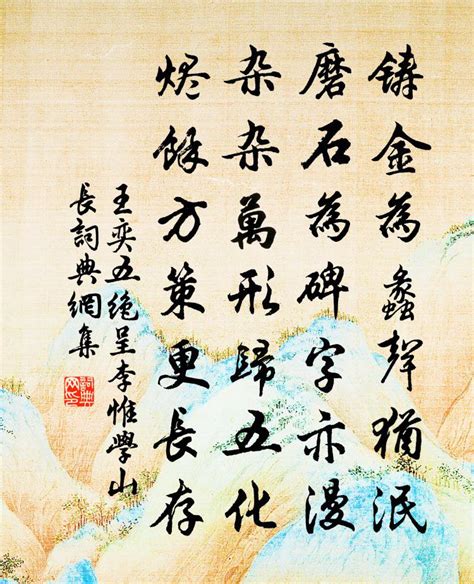 铸金為蠡聲猶泯
磨石為碑字亦漫
杂杂萬形歸五化
烬餘方策更長存
王奕五绝呈李惟學山
長詞典網集